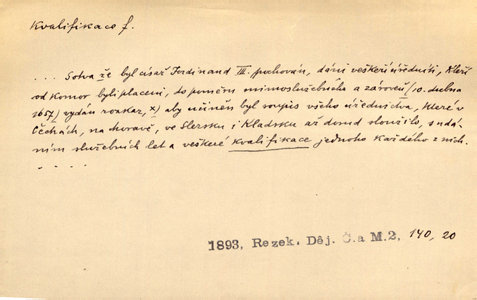 Kvalifikace f.
.... Sotva že byl císař Ferdinand III. pochován, dáni veškeří úředníci, kteří
od komor byli placeni, do poměru mimoslužebného a zároveň /10. dubna
1657/ vydán rozkaz, x) aby učiněn byl soupis všeho úřednictva, které v
Čechách, na Moravě, ve Slezsku i Kladsku až dosud sloužilo, s udá-
ním služebních let a veškeré kvalifikace jednoho každého z nich.
. . . . .
1893, Rezek. Děj. Č.a M.2, 140, 20